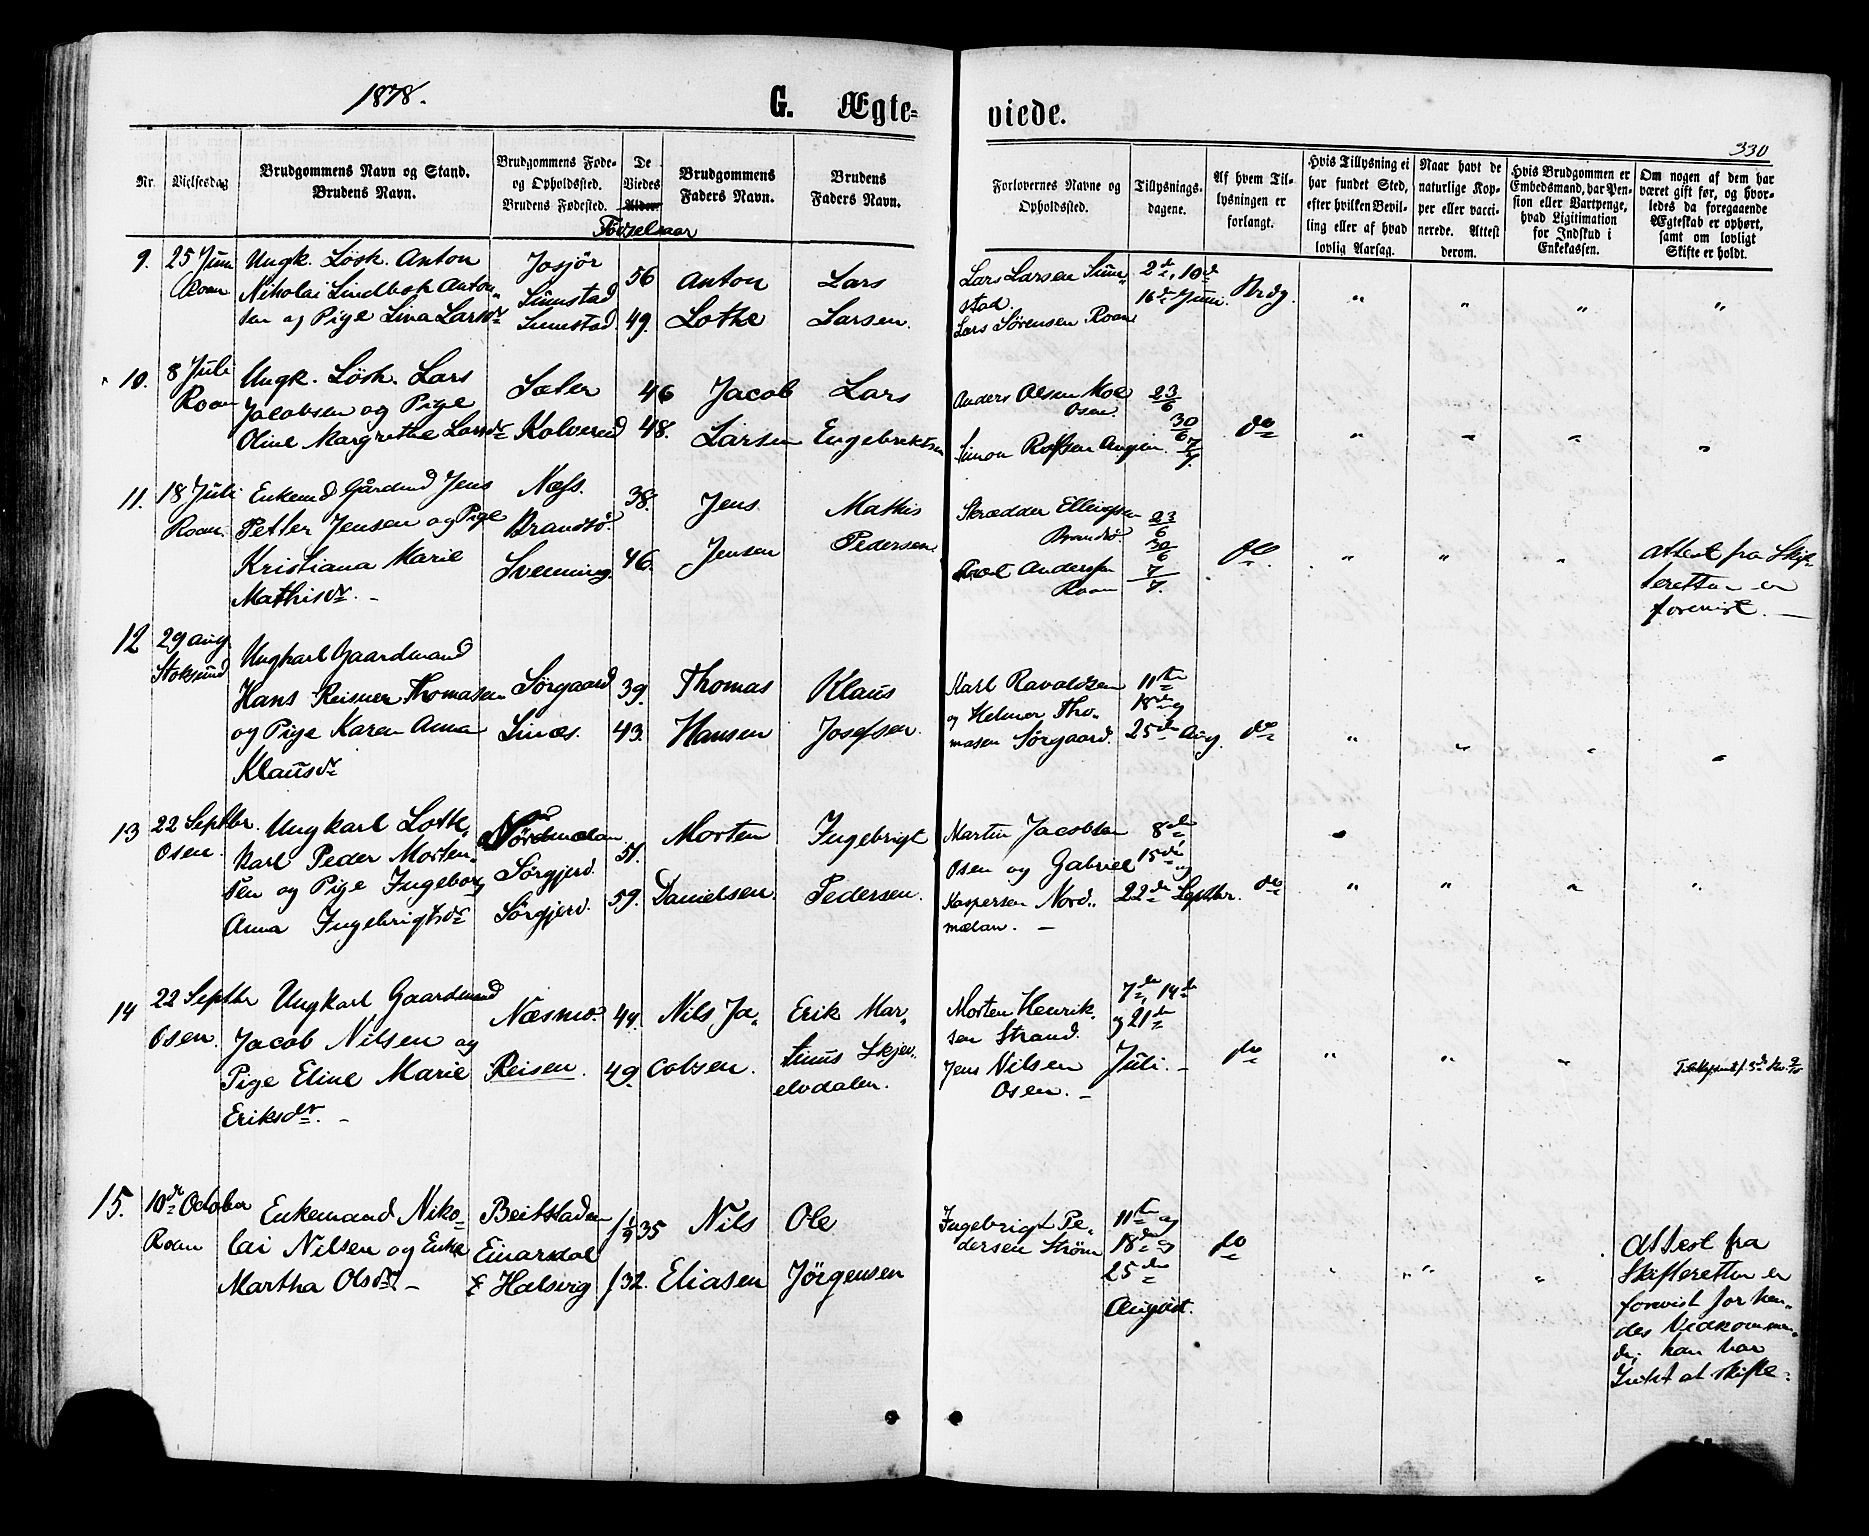 1878.
G. Ægte-
viede.
330
Nr.
Vielsesdag
Brudgommens Navn og Stand.
Brudens Navn.
Brudgommens Føde-
og Opholdssted.
Brudens Fødested.
De
Viedes
Alder.
Fødselsaar
Brudgommens
Faders Navn.
Brudens
Faders Navn.
Forlovernes Navne og
Opholdssted.
Tillysnings-
dagene.
Af hvem Til-
lysningen er
forlangt.
Hvis Tillysning ei
har fundet Sted,
efter hvilken Bevil-
ling eller af hvad
lovlig Aarsag.
Naar havt de
naturlige Kop-
per eller vacci-
nerede. Attest
derom.
Hvis Brudgommen er
Embedsmand, har Pen-
sion eller Vartpenge,
hvad Legitimation
for Indskud i
Enkekassen.
Om nogen af dem har
været gift før, og hvor-
ledes da foregaaende
Ægteskab er ophørt,
samt om lovligt
Skifte er holdt.
9.
25 Juni
Roan
Ungk. Løsk. Anton
Nikolai Lindbok Anton-
sen og Pige Lina Larsdr
Josjør
Sumstad
Sumstad
56
49.
Anton
Lothe
Lars
Larsen.
Lars Larsen Sum-
stad
Lars Sørensen Roan
2de, 10de
16de Juni.
Brdg.
" " " "
10.
8 Juli
Roan
Ungk. Løsk. Lars
Jacobsen og Pige
Oline Margrethe Larsdr
Sæter
Kolvereid
46
48.
Jacob
Larsen
Lars
Engebriktsen
Anders Olsen Moe
Osen
Simon Angen.
23/6
30/6
7/7.
do
" " " "
11.
18 Juli
Roan.
Enkemd Gårdmd Jens
Petter Jensen og Pige
Kristiana Marie
Mathisdr. -
Næss.
Brandsö.
Svenning.
38.
46.
Jens
Jensen
Mathis
Pedersen.
Skrædder Ellingsen
Brandsö
Anderssen
Roan
23/6
30/6
7/7.
do.
" " "
Attest fra Skif-
teretten er
forevist. -
12
29 Aug.
Stoksund
Ungkarl Gaardmand
Hans Reisner Thomasen
og Pige Karen Anna
Klausdr
Sørgaard
Linæs.
39.
43.
Thomas
Hansen
Klaus
Josefsen.
Karl Ravaldsen
og Helmer Tho-
masen Sørgaard.
11te
18de og
25de Aug.
do
" " " "
13
22 Septbr.
Osen.
Ungkarl Lott-
karl Peder Morten-
sen og Pige Ingeborg
Anna Ingebrigtsdr
Nordmelan
Sørgjerd.
Sørgjerd.
51.
59.
Morten
Danielsen.
Ingebrigt
Pedersen.
Martin Jacobsen
Osen og Gabriel
Kaspersen Nord-
mælan. -
8de
15de og
22de Septbr.
do
" " " "
14
22 Septbr
Osen.
Ungkarl Gaardmand
Jacob Nilsen og
Pige Eline Marie
Eriksdr. -
Næsmo.
Reisen.
44.
49.
Nils Ja-
cobsen.
Erik Mar-
tinus Skjer-
elvdalen.
Morten Henrik-
sen Strand.
Jens Nilsen
Osen. -
7de, 14de
og 21de
Juli. -
do
" " "
15.
10de October
Roan
Enkemand Niko-
lai Nilsen og Enke
Martha Olsdr. -
Beitstaden
Einarsdal
Halsvig
35
32.
Nils
Eliasen
Ole
Jørgensen
Ingebrigt Pe-
dersen Strøm
11te og
18de og
25de
August.
do
" " "
Attest fra
Skifteretten er
forevist for hen-
des Vedkommen-
de; han har
Intet at skifte.